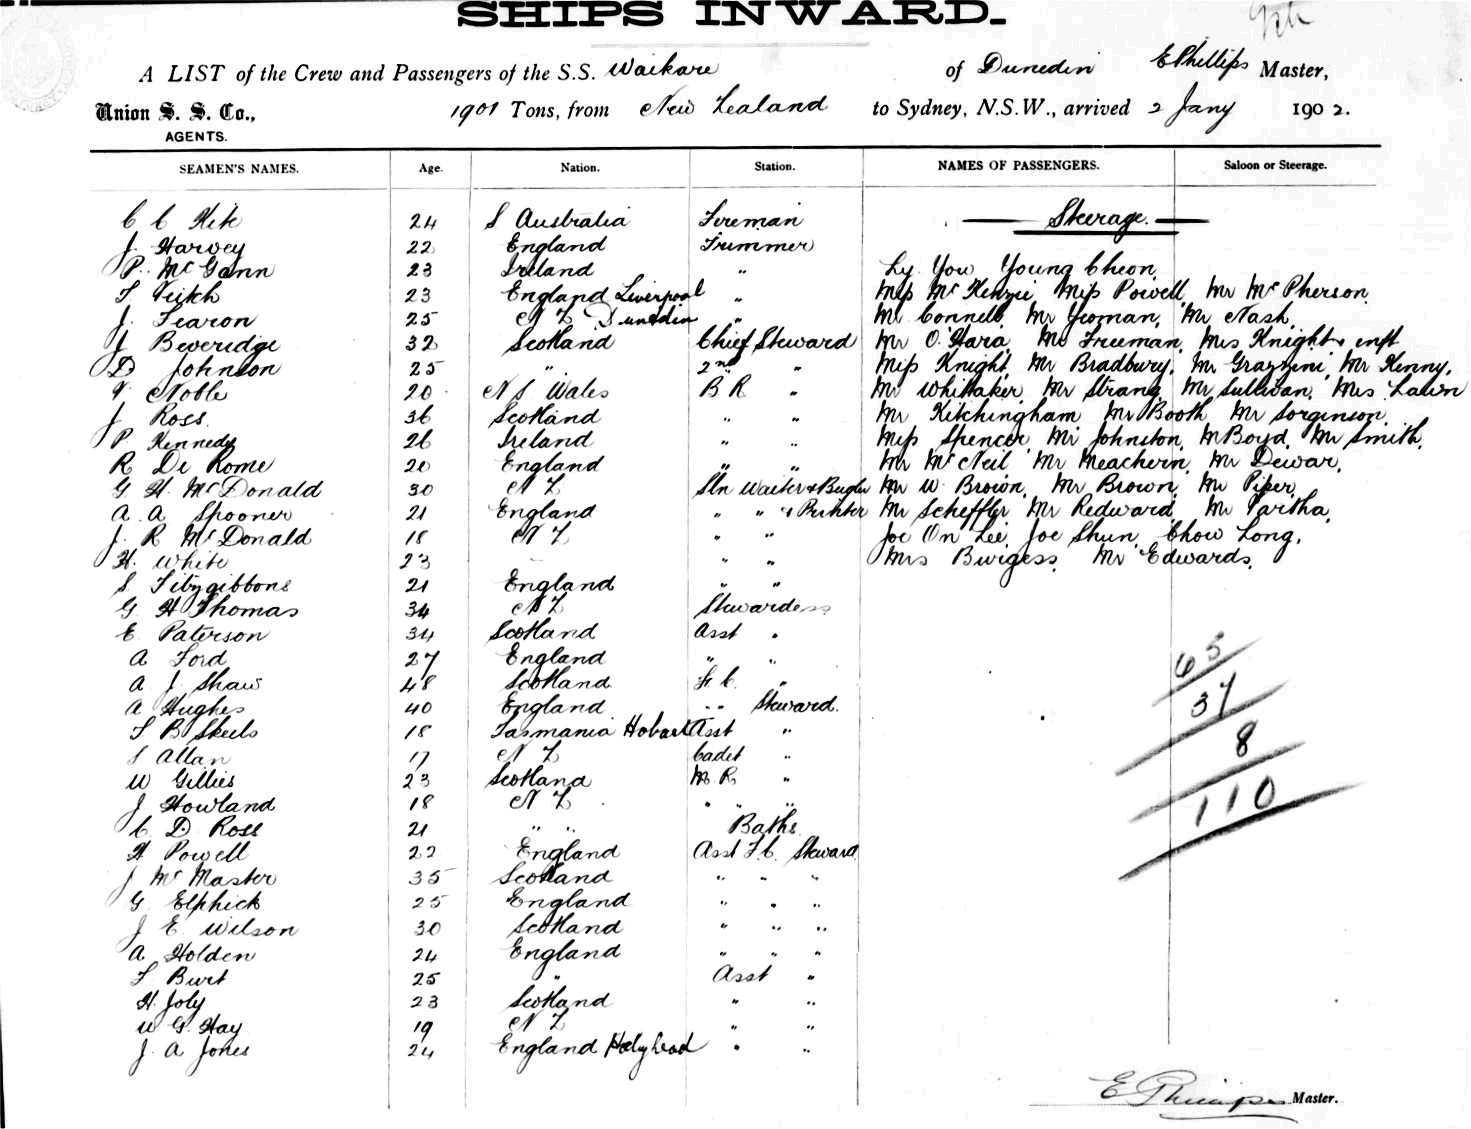 SHIPS INWARD.
A LIST of the Crew and Passengers of the S.S. Waikare of Dunedin E Phillips Master,
Union S. S. Co., 1901 Tons, from New Zealand to Sydney, N.S.W., arrived 2 Jany 1902.
AGENTS.
SEAMEN'S NAMES. Age. Nation. Station. NAMES OF PASSENGERS. Saloon or Steerage.
C C Kite 24 S Australia Fireman Steerage.
J. Harvey 22 England Trimmer
P. McGann 23 Ireland " Ly You Young Cheon
T Veitch 23 England Liverpool " Miss McKenzie Miss Powell Mr McPherson
J. Fearon 25 N Z Dunedin " Mr Connell Mr Yeoman, Mr Nash,
J Beveridge 32 Scotland Chief Steward Mr O'Hara Mr Freeman, Mrs Knight & inft
D Johnson 25 " 2nd " Miss Knight, Mr Bradbury, Mr Grazzini, Mr Kenny,
Noble 20 N S Wales B R " Mr Whittaker, Mr Strang, Mr Sullivan, Mrs Lawn
J Ross. 36 Scotland " " Mr Kitchingham Mr Booth Mr Sorginson
P Kennedy 26 Ireland " " Miss Spencer Mr Johnston, M Boyd, Mr Smith,
R De Rome 20 England " " Mr McNeil Mr Meachern, Mr Dewar,
G H. McDonald 30 N Z Sln Waiter & Bugler Mr W. Brown, Mr Brown, Mr Piper,
A. A Spooner 21 England " " & Printer Mr Scheffler Mr Redward Mr Partha,
J. R McDonald 18 N Z " " Joe On Lee, Joe Shun, Chow Long,
H. White 23 " " Mrs Burgess, Mr Edwards,
S. Fitzgibbons 21 England " "
G H Thomas 34 N Z Stewardess
E Paterson 34 Scotland Asst "
A Ford 27 England " "
A J. Shaw 48 Scotland F. C. "
A Hughes 40 England " " Steward.
T B Skeels 18 Tasmania Hobart Asst "
Allan 17 N Z Cadet "
W Gillies 23 Scotland M R "
J Howland 18 N Z " " "
C. D. Ross 21 " " Baths
H Powell 22 England Asst F.C. Steward
J McMaster 35 Scotland " " "
G. Elphick 25 England " " "
J E. Wilson 30 Scotland " " "
A Holden 24 England " " "
T Burt 25 " Asst "
H. Joly 23 Scotland " "
W G. Hay 19 N Z " "
J. A Jones 24 England Holyhead " "
65
37
8
110
E Phillips Master.